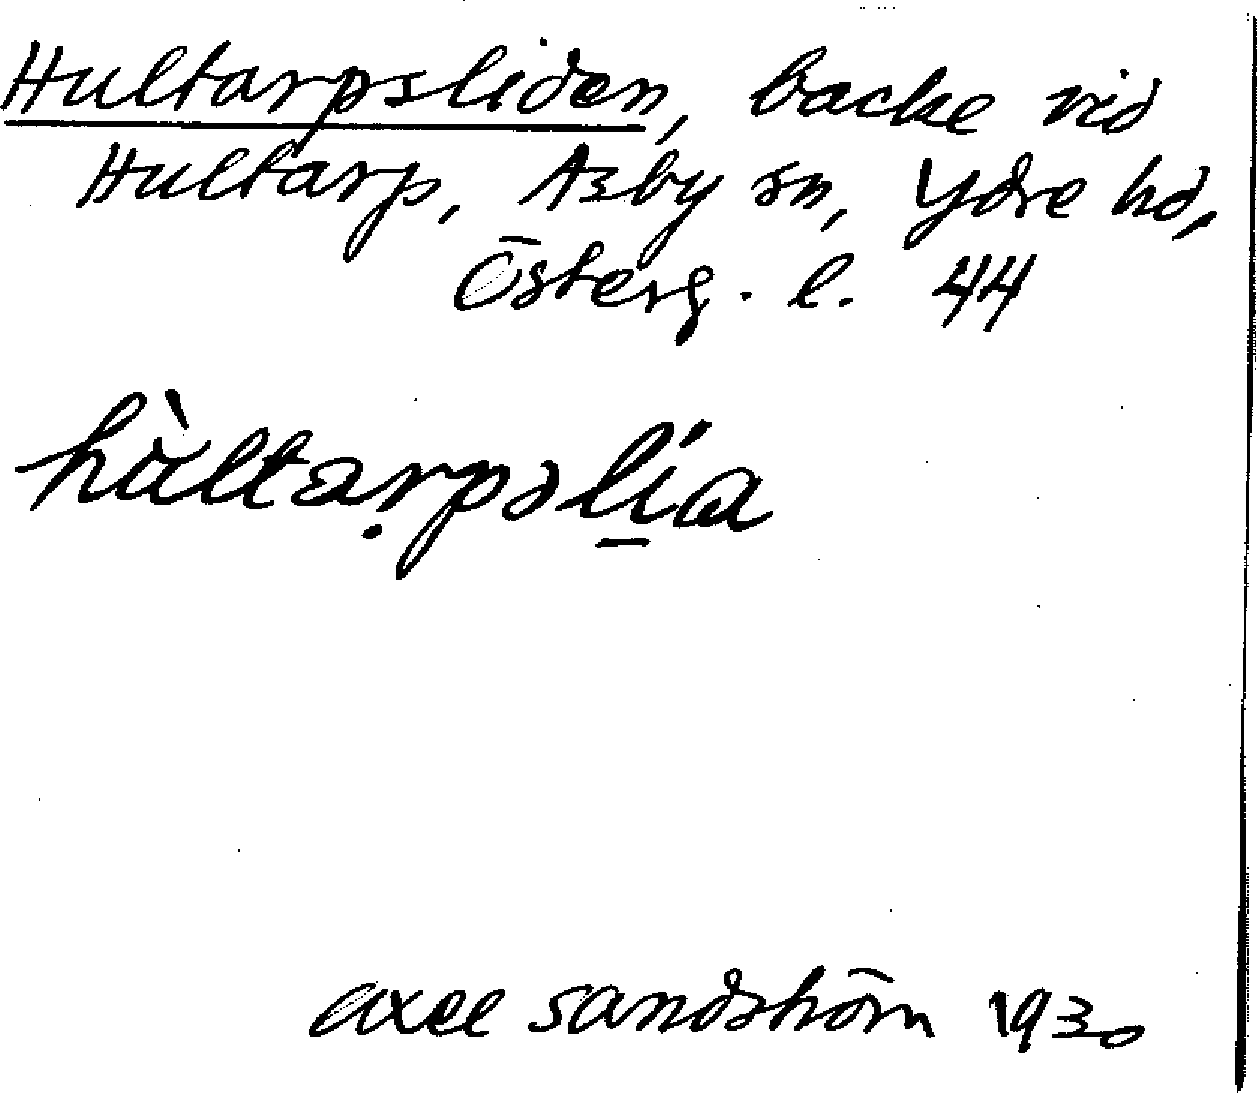 Hultarpsliden, backe vid
Hultarp, Asby sn, Ydre hd,
Österg. l. 44
hùltarpslia
axel sandström 1930